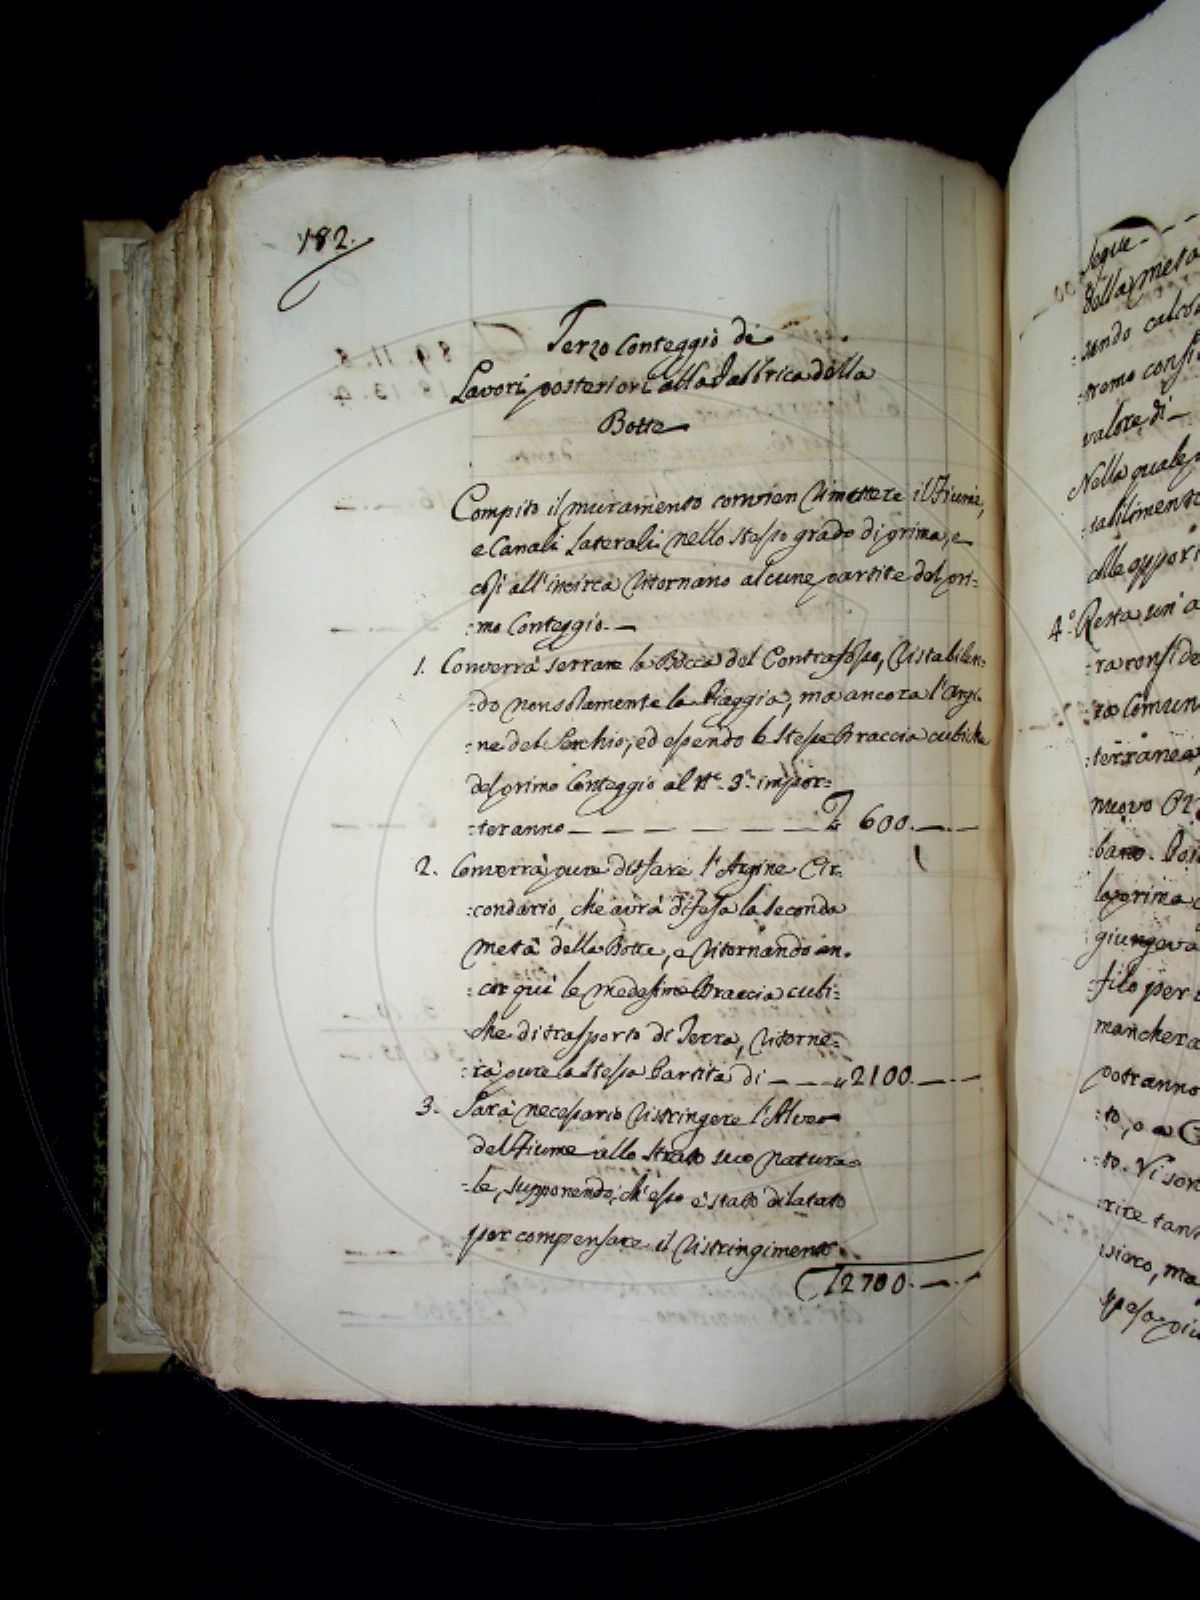 182.
Terzo Conteggio de
Lavori posteriori alla Fabbrica della
Botte
Compito il muramento convien rimettere il Fiume,
e Canali Laterali nello stesso grado di prima, e
così all'incirca ritornano alcune partite del pri=
=mo Conteggio. —
1. Converrà serrare la Bocca del Contrafosso, ristabilen=
=do non solamente la Piaggia, ma ancora l'Argi=
=ne del Serchio; ed essendo le stesse Braccia cubiche
del primo Conteggio al N.º 3.º impor=
=teranno — — — — — — £ 600. — —
2. Converrà pure disfare l'Argine Cir=
=condario, che avrà difesa la seconda
metà della Botte, e ritornando an=
=cor qui le medesime Braccia cubi=
=che di trasporto di Terra, ritorne=
=rà pure la stessa Partita di — — — " 2100. — —
3. Sarà necessario ristringere l'Alveo
del Fiume allo stato suo natura=
=le, supponendo, ch'esso è stato dilatato
per compensare il ristringimento
£ 2700. — —
Segue - - -
della metà
sendo
=tremo
valore di —
Nella quale
=tabilimento
alle
4.º Resta un' a
=ra
=ra Comun
=terranea,
nuovo
=bano.
la prima
giungeva
filo per
mancherà
potranno
=to, o a
=to. Vi son
=rire tan
=sico, ma
spesa più